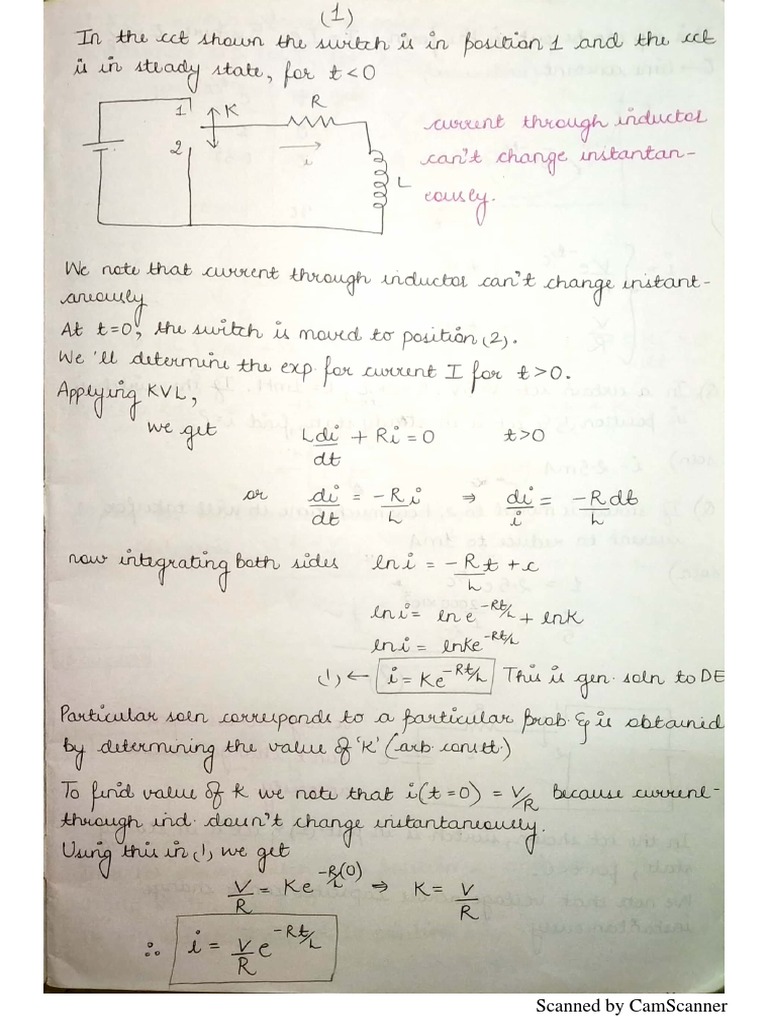 (1)
In the cct shown the switch is in position 1 and the cct
is in steady state, for t<0
1
K
R
2
i
L
current through inductor
can't change instantan-
eously.
We note that current through inductor can't change instant-
aneously
At t=0, the switch is moved to position (2).
We'll determine the exp. for current I for t>0.
Applying KVL,
we get L di/dt + Ri = 0 t>0
or di/dt = -R/L i ⇒ di/i = -R/L dt
now integrating both sides ln i = -R/L t + c
ln i = ln e^-Rt/L + ln K
ln i = ln Ke^-Rt/L
(1) ← i = Ke^-Rt/L This is gen. soln to DE
Particular soln corresponds to a particular prob. & is obtained
by determining the value of 'K' (arb. constt.)
To find value of K we note that i(t=0) = V/R because current
through ind. doun't change instantaneously.
Using this in (1) we get
V/R = Ke^-R/L(0) ⇒ K = V/R
∴ i = V/R e^-Rt/L
Scanned by CamScanner